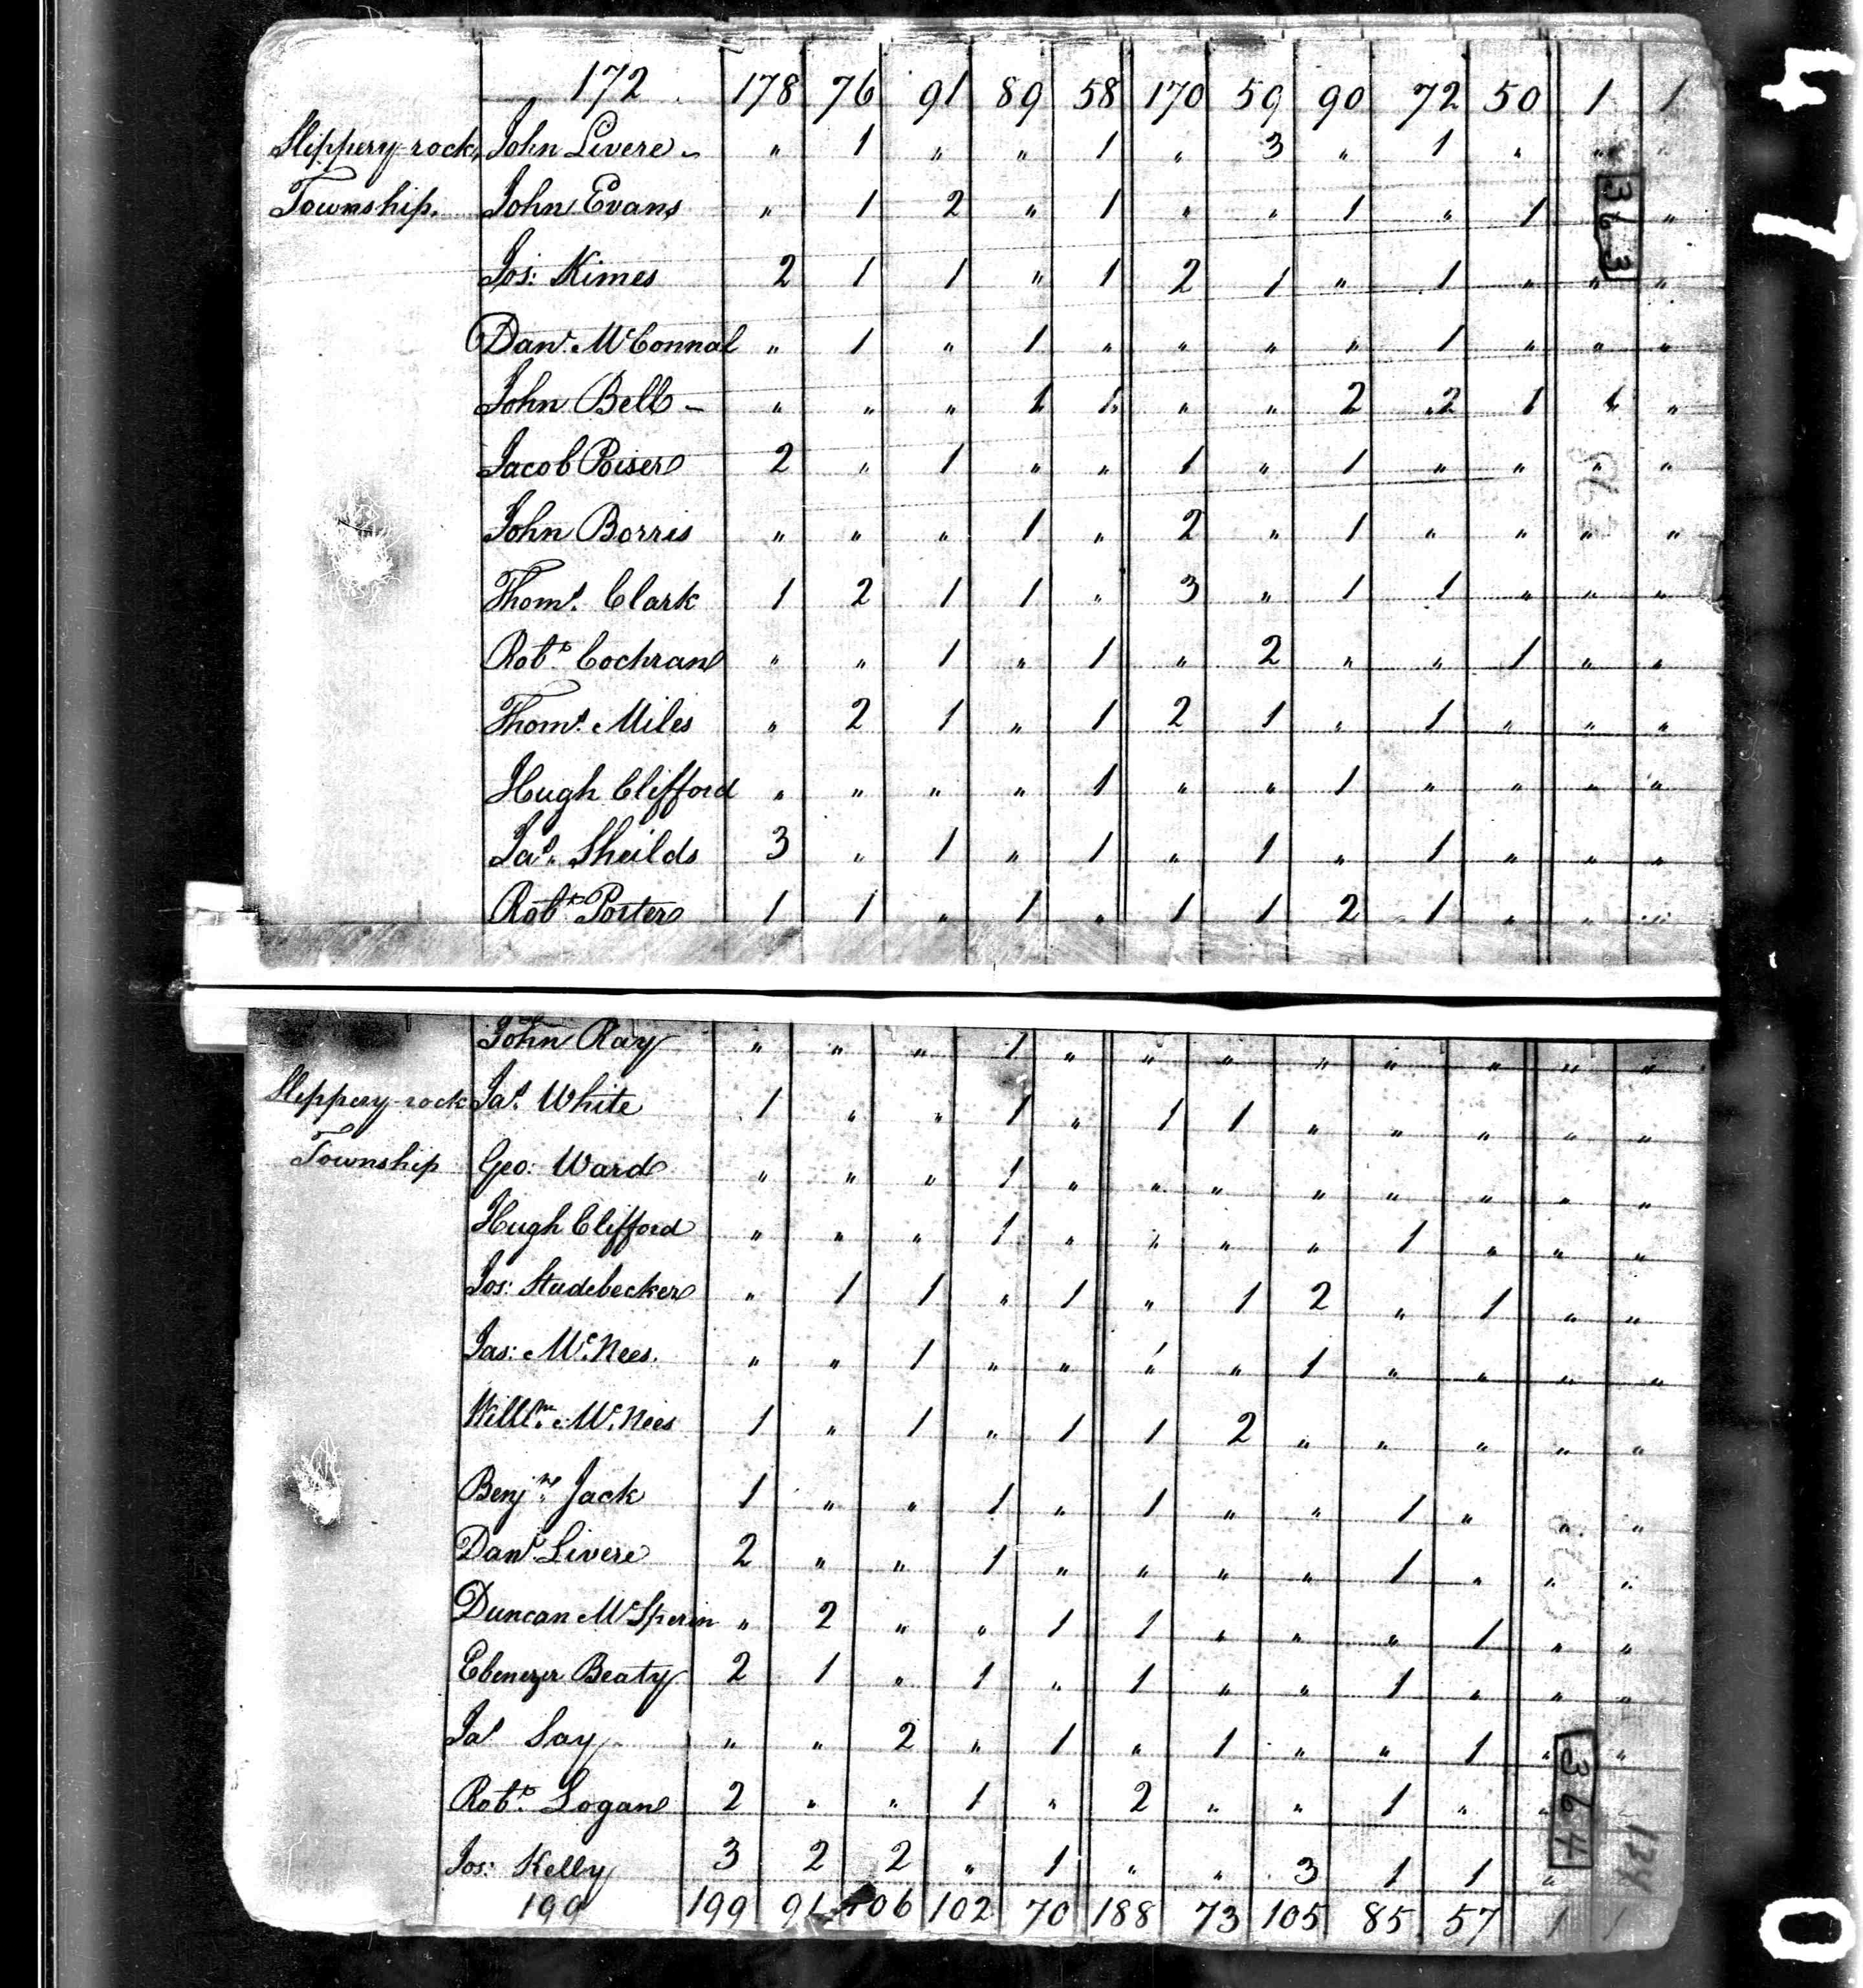 172 178 76 91 89 58 170 59 90 72 50 1 1
Slippery-rock John Livere " 1 " " 1 " 3 " 1 " " "
Township. John Evans " 1 2 " 1 " " 1 " 1 "
Jos: Kimes 2 1 1 " 1 2 1 " 1 " " "
Danl. McConnal " 1 " 1 " " " " 1 " " "
John Bell " " " 1 1 " " 2 2 1 1 "
Jacob 2 " 1 " " 1 " 1 " " " "
John Borris " " " 1 " 2 " 1 " " " "
Thoms. Clark 1 2 1 1 " 3 " 1 1 " " "
Robt. Cochran " " 1 " 1 " 2 " " 1 " "
Thoms. Miles " 2 1 " 1 2 1 " 1 " " "
Hugh Clifford " " " " 1 " " 1 " " " "
Jas. Sheilds 3 " 1 " 1 " 1 " 1 " " "
Robt. Porter 1 1 " 1 " 1 1 2 1 " " "
363
John Ray " " " 1 " " " " " " " "
Slippery-rock Jas. White 1 " " 1 " 1 1 " " " " "
Township Geo: Ward " " " 1 " " " " " " " "
Hugh Clifford " " " 1 " " " " 1 " " "
Jos: Studebecker " 1 1 " 1 " 1 2 " 1 " "
Jas: McNees. " " 1 " " " " 1 " " " "
Willm. McNees 1 " 1 " 1 1 2 " " " " "
Benjn. Jack 1 " " 1 " 1 " " 1 " " "
Danl. Livere 2 " " 1 " " " " 1 " " "
Duncan McSperin " 2 " " 1 1 " " " 1 " "
Ebenezer Beaty 2 1 " 1 " 1 " " 1 " " "
Jas Say " " 2 " 1 " 1 " " 1 " "
Robt. Logan 2 " " 1 " 2 " " 1 " " "
Jos: Kelly 3 2 2 " 1 " " 3 1 1 "
199 199 91 106 102 70 188 73 105 85 57 1 1
364
134